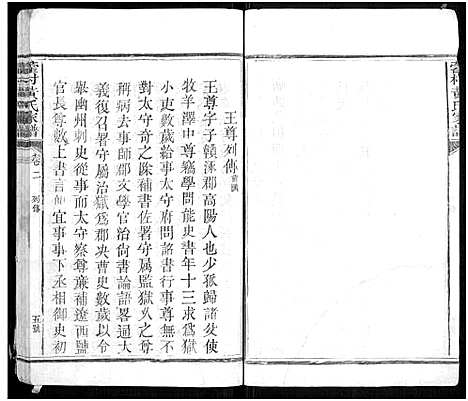 王尊列傳 前漢
王尊字子贛涿郡高陽人也少孤歸諸父使
牧羊澤中尊竊學問能史書年十三求為獄
小吏數歲給事太守府問詔書行事尊無不
對太守奇之除補書佐署守屬監獄久之尊
稱病去事師郡文學官治尚書論語畧通大
義復召署守屬治獄為郡決曹史數歲以令
舉幽州刺史從事而太守察尊廉補遼西鹽
官長尊數上書言便宜事事下丞相御史初
黃氏家譜
卷二
列傳
五號